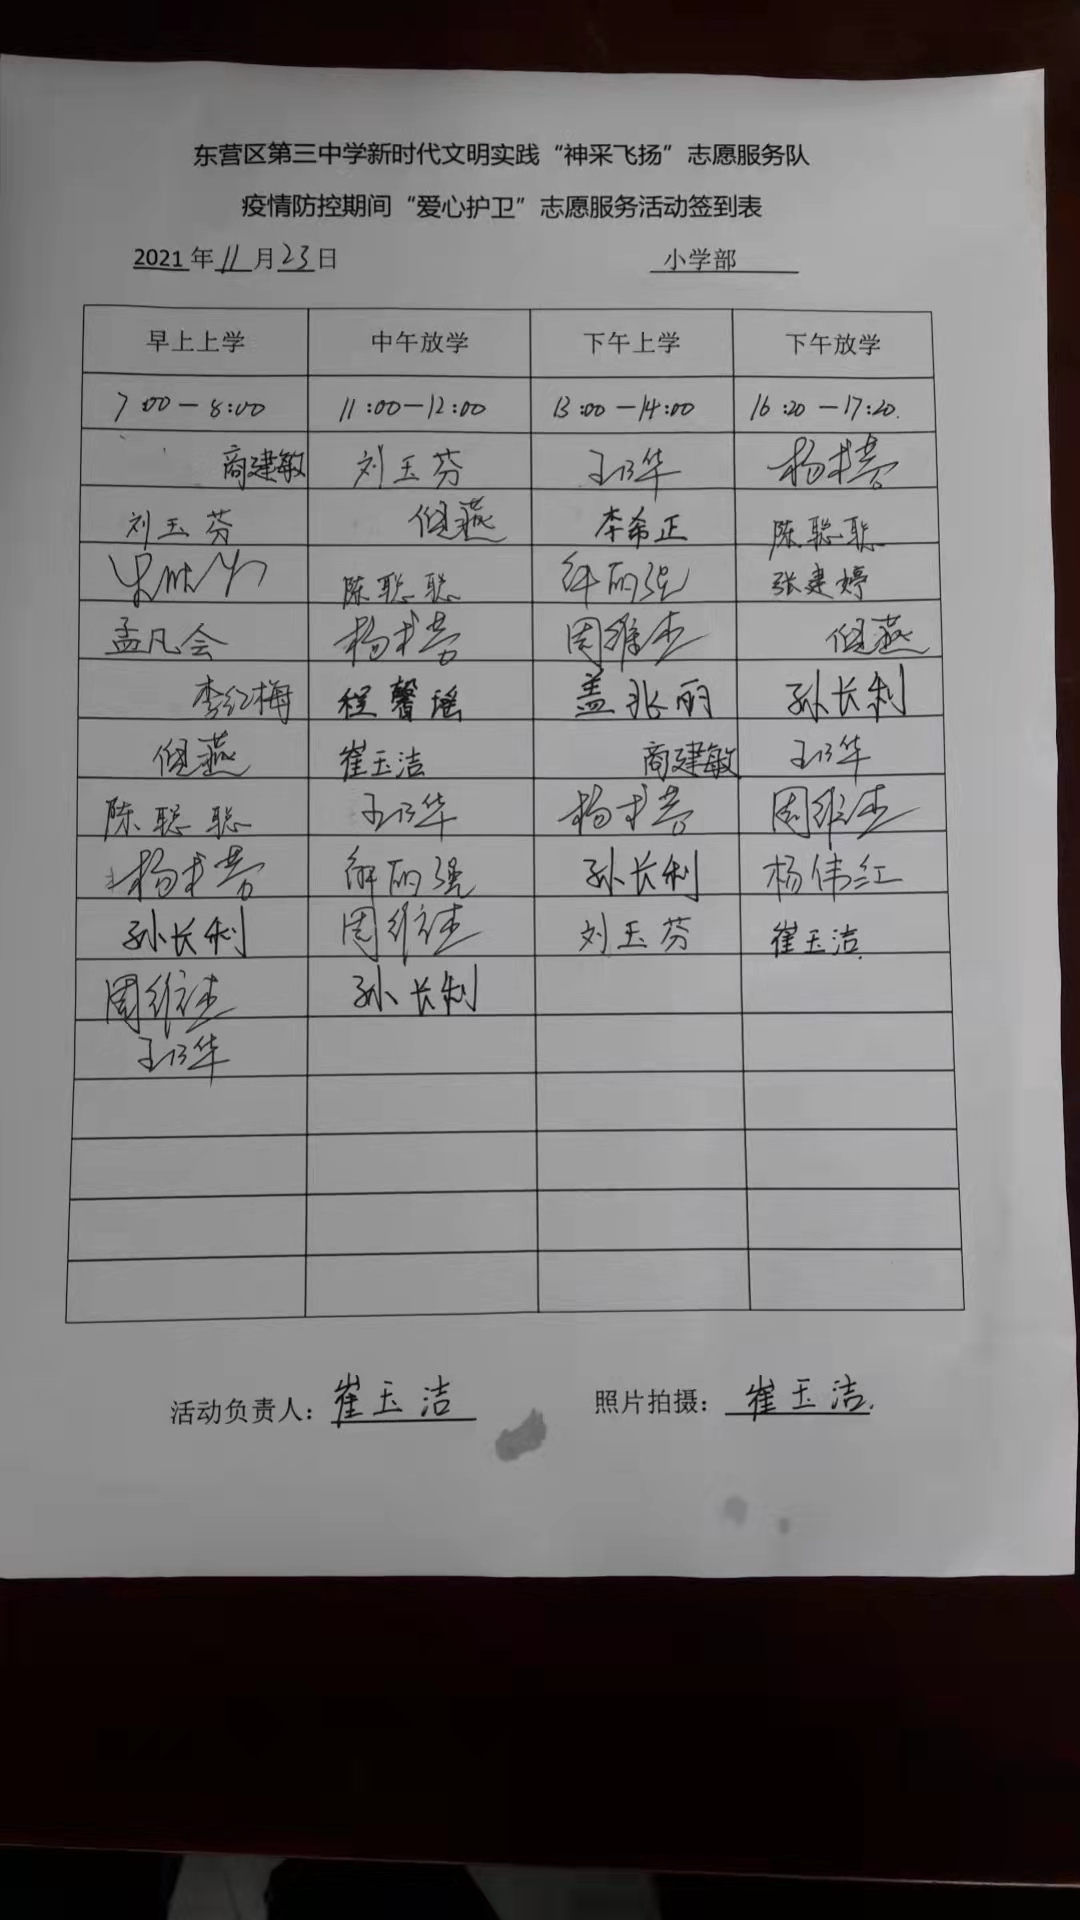 东营区第三中学新时代文明实践“神采飞扬”志愿服务队
疫情防控期间“爱心护卫”志愿服务活动签到表
2021年11月23日 小学部
早上上学 中午放学 下午上学 下午放学
7:00-8:00 11:00-12:00 13:00-14:00 16:20-17:20.
商建敏 刘玉芬 王乃华
刘玉芬 倪燕 李希正 陈聪聪
陈聪聪 张建婷
孟凡会 周维杰 倪燕
李红梅 程馨瑶 盖兆丽 孙长利
倪燕 崔玉洁 商建敏 王乃华
陈聪聪 王乃华 周维杰
解丽强 孙长利 杨伟红
孙长利 周维杰 刘玉芬 崔玉洁.
周维杰 孙长利
王乃华
活动负责人：崔玉洁 照片拍摄：崔玉洁.